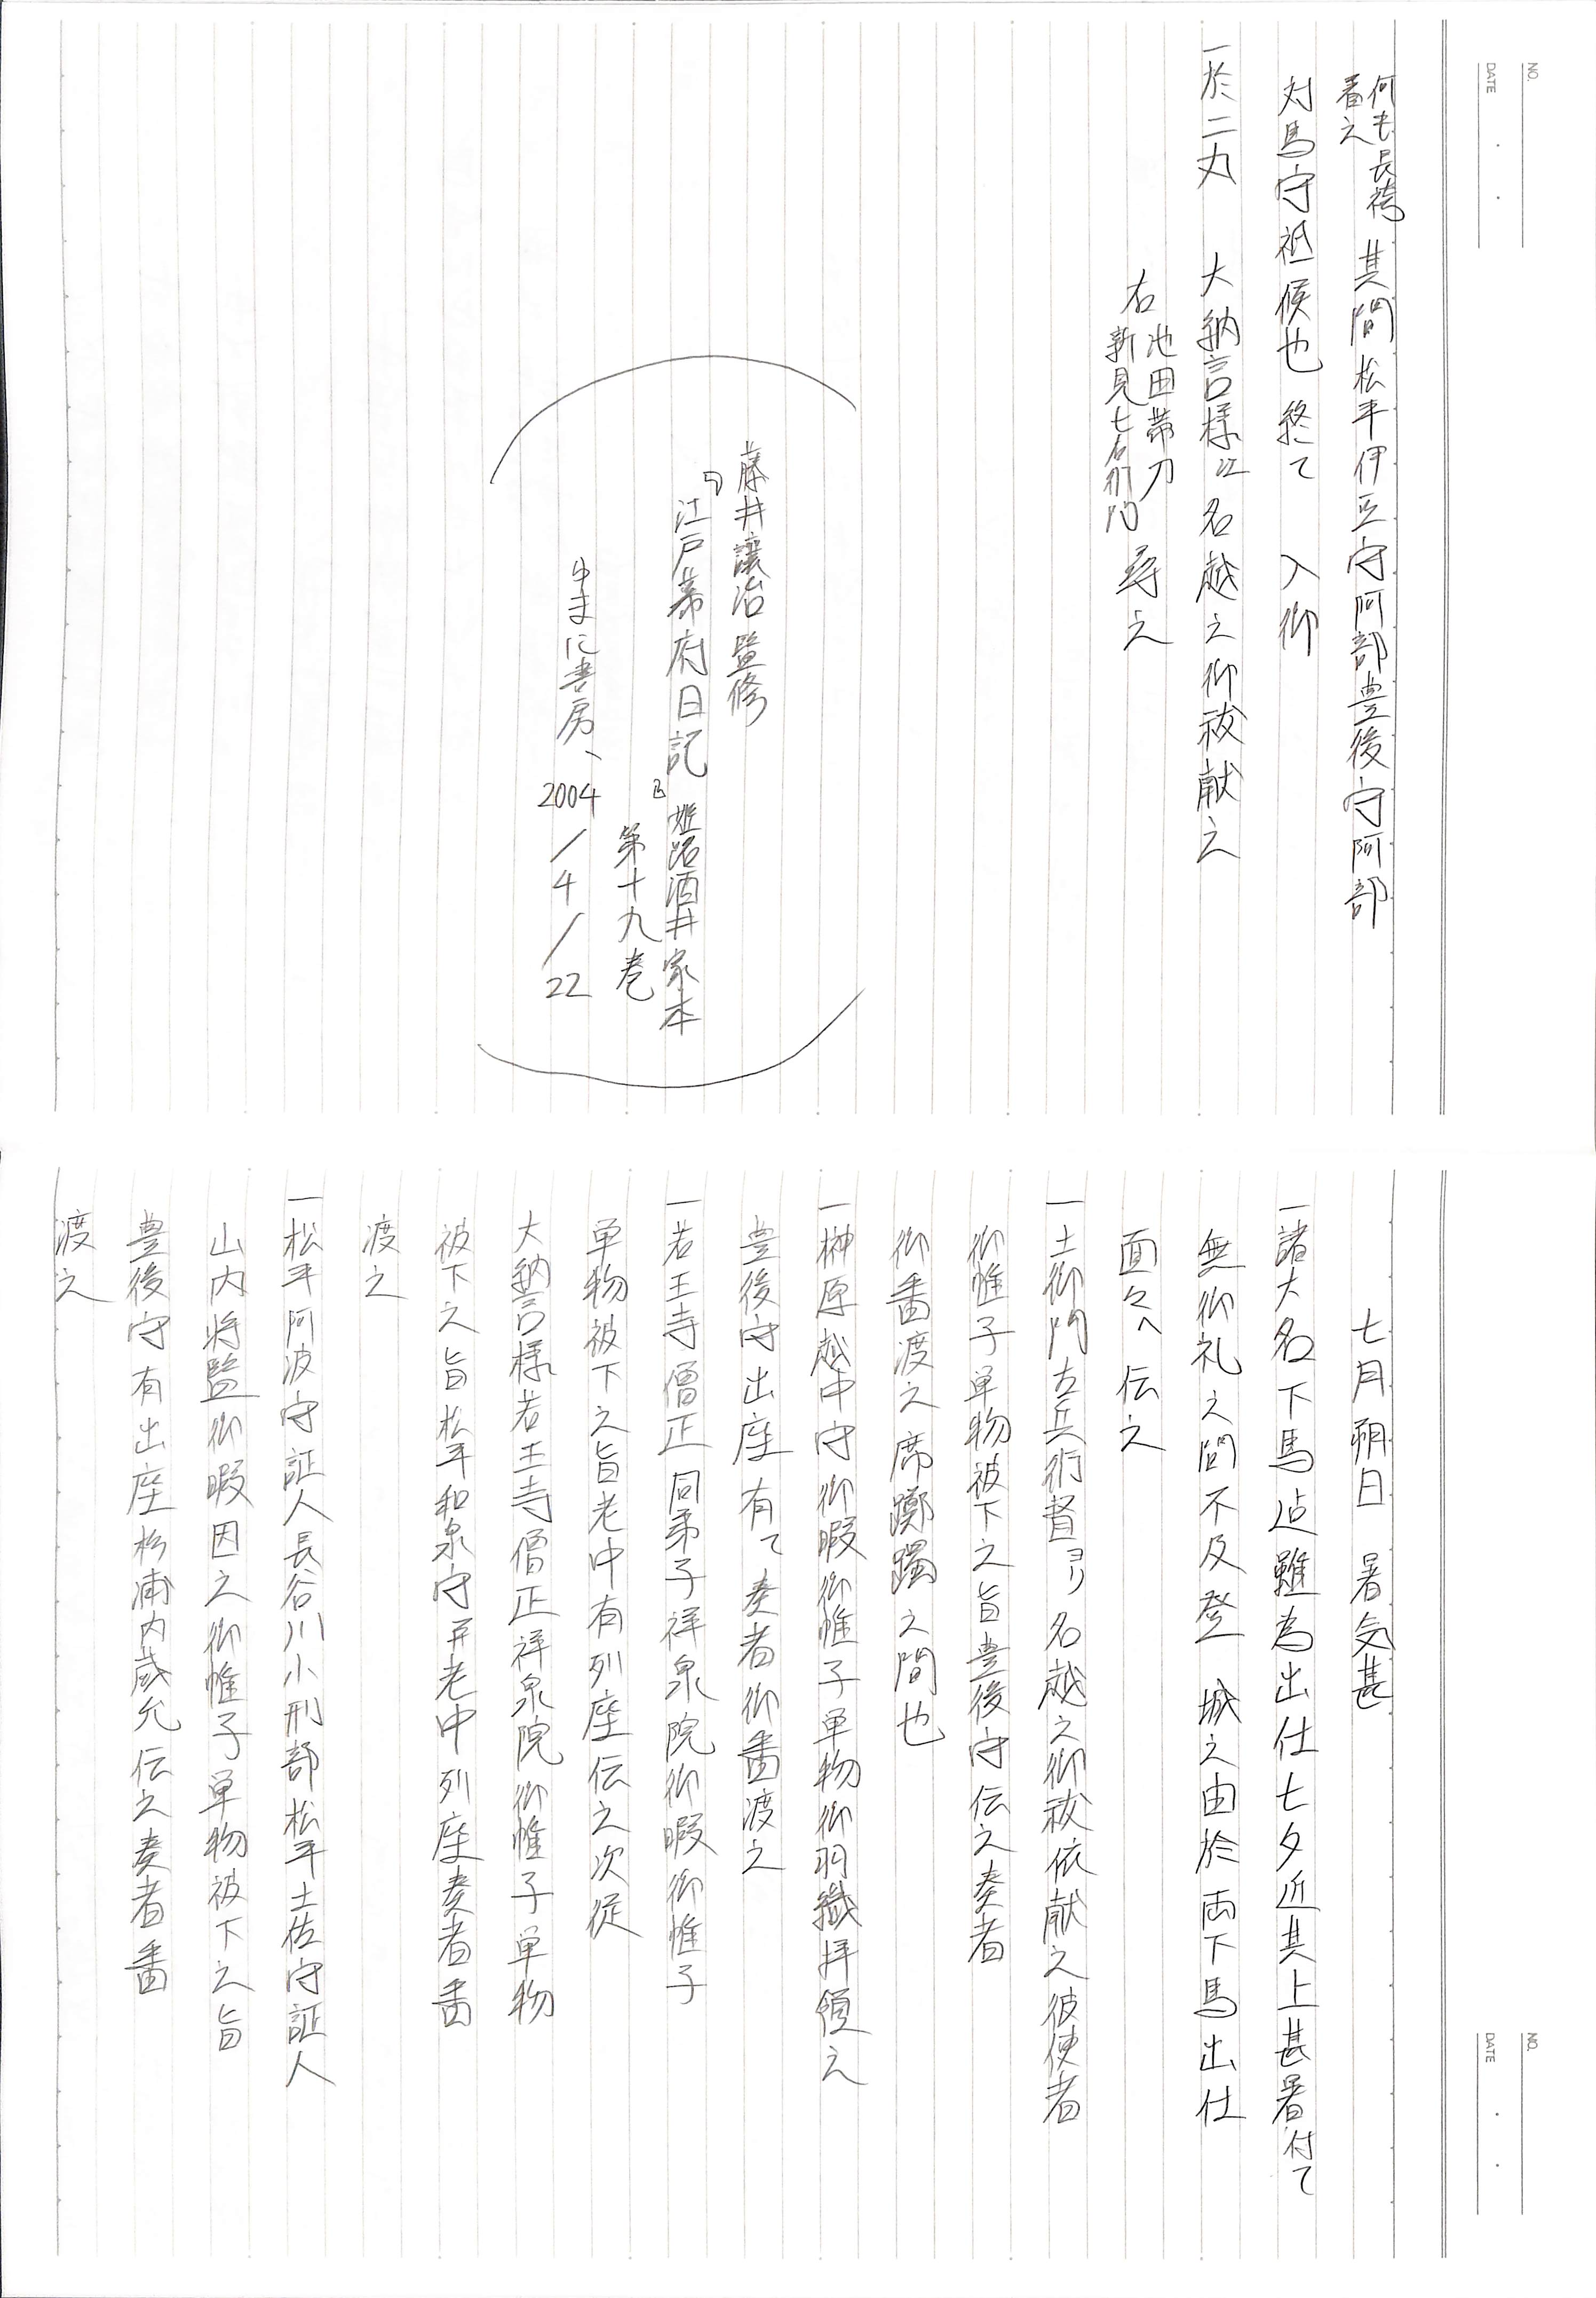 NO.
DATE
何も長袴
着之
其間松平伊豆守阿部豊後守阿部
対馬守祗候也終て 入御
一於二丸 大納言様江名越之御祓献之
右
池田帯刀
新見七右衛門
尋之
藤井譲治監修
『江戸幕府日記 姫路酒井家本
』第十九巻
ゆまに書房、2004/4/22
NO.
DATE
七月朔日 暑気甚
一諸大名下馬迠雖為出仕七夕近其上甚暑付て
無御礼之間不及登 城之由於両下馬出仕
面々へ伝之
一土御門左兵衛督ヨリ名越之御祓依献之彼使者
御帷子単物被下之旨豊後守伝之奏者
御番渡之席躑躅之間也
一榊原越中守御暇御帷子単物御羽織拝領之
豊後守出座有て奏者御番渡之
一若王寺僧正同弟子祥泉院御暇御帷子
単物被下之旨老中有列座伝之次従
大納言様若王寺僧正祥泉院御帷子単物
被下之旨松平和泉守并老中列座奏者番
渡之
一松平阿波守証人長谷川小刑部松平土佐守証人
山内将監御暇因之御帷子単物被下之旨
豊後守有出座杉浦内蔵允伝之奏者番
渡之